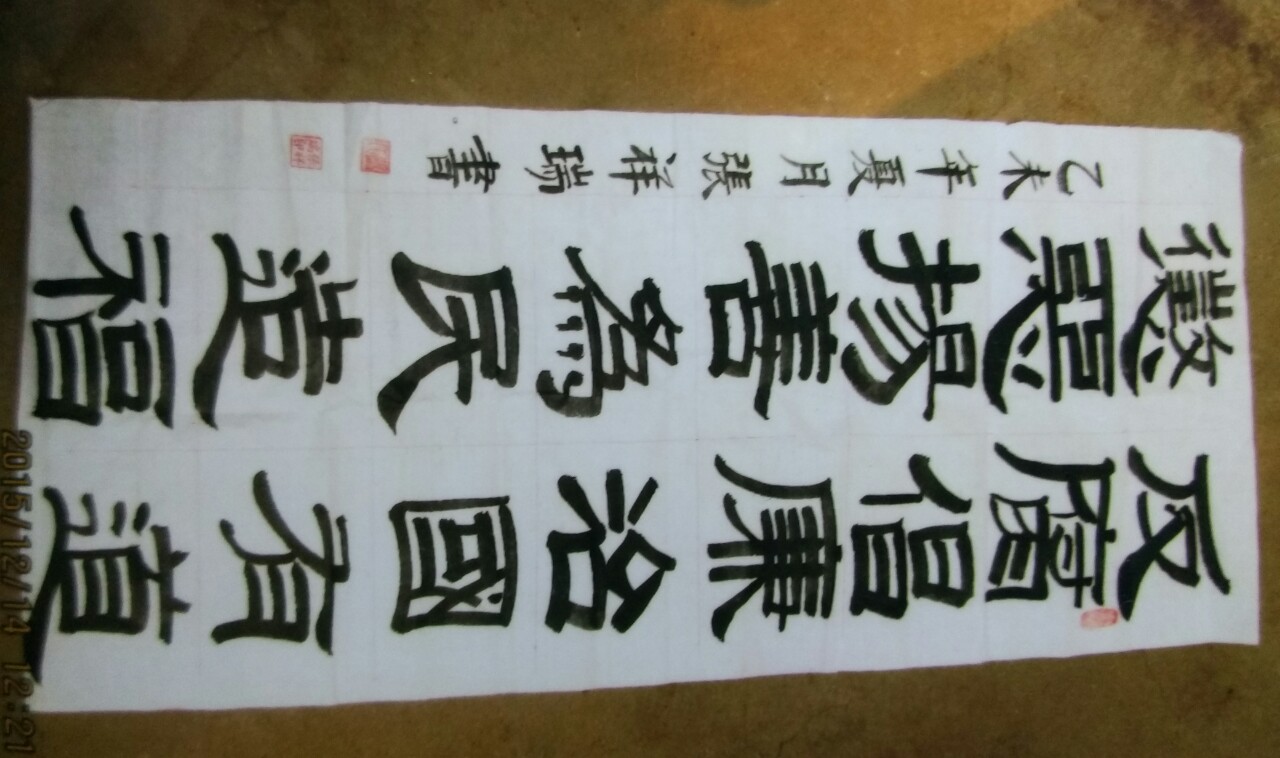 反腐倡廉治國有道
懲惡揚善為民造福
乙未年夏月張祥瑞書
2015/12/14 12:21